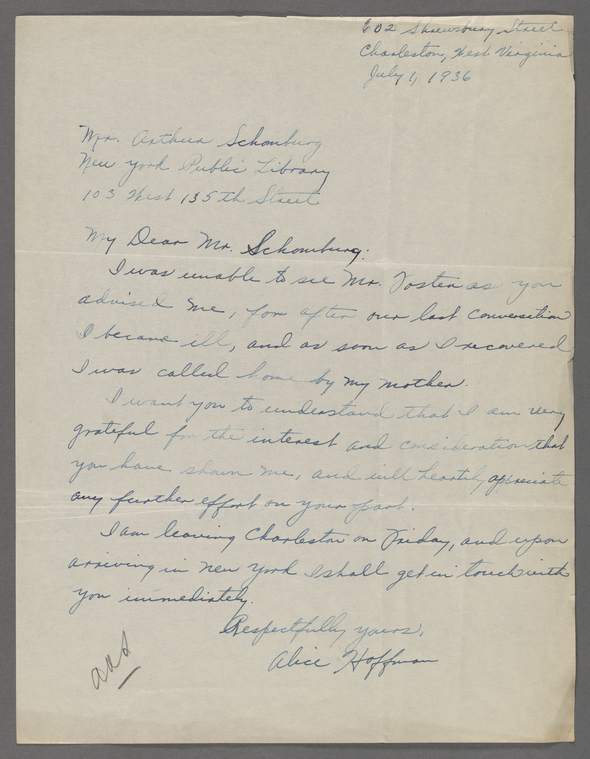 602 Shrewsbury Street
Charleston, West Virginia
July 1, 1936
Mr. Arthur Schomburg
New York Public Library
103 West 135th Street
My Dear Mr. Schomburg:
I was unable to see Mr. Foster as you
advised me, for after our last conversation
I became ill, and as soon as I recovered
I was called home by my mother.
I want you to understand that I am very
grateful for the interest and consideration that
you have shown me, and will heartily appreciate
any further effort on your part.
I am leaving Charleston on Friday, and upon
arriving in New York I shall get in touch with
you immediately.
Respectfully yours,
Alice Hoffman